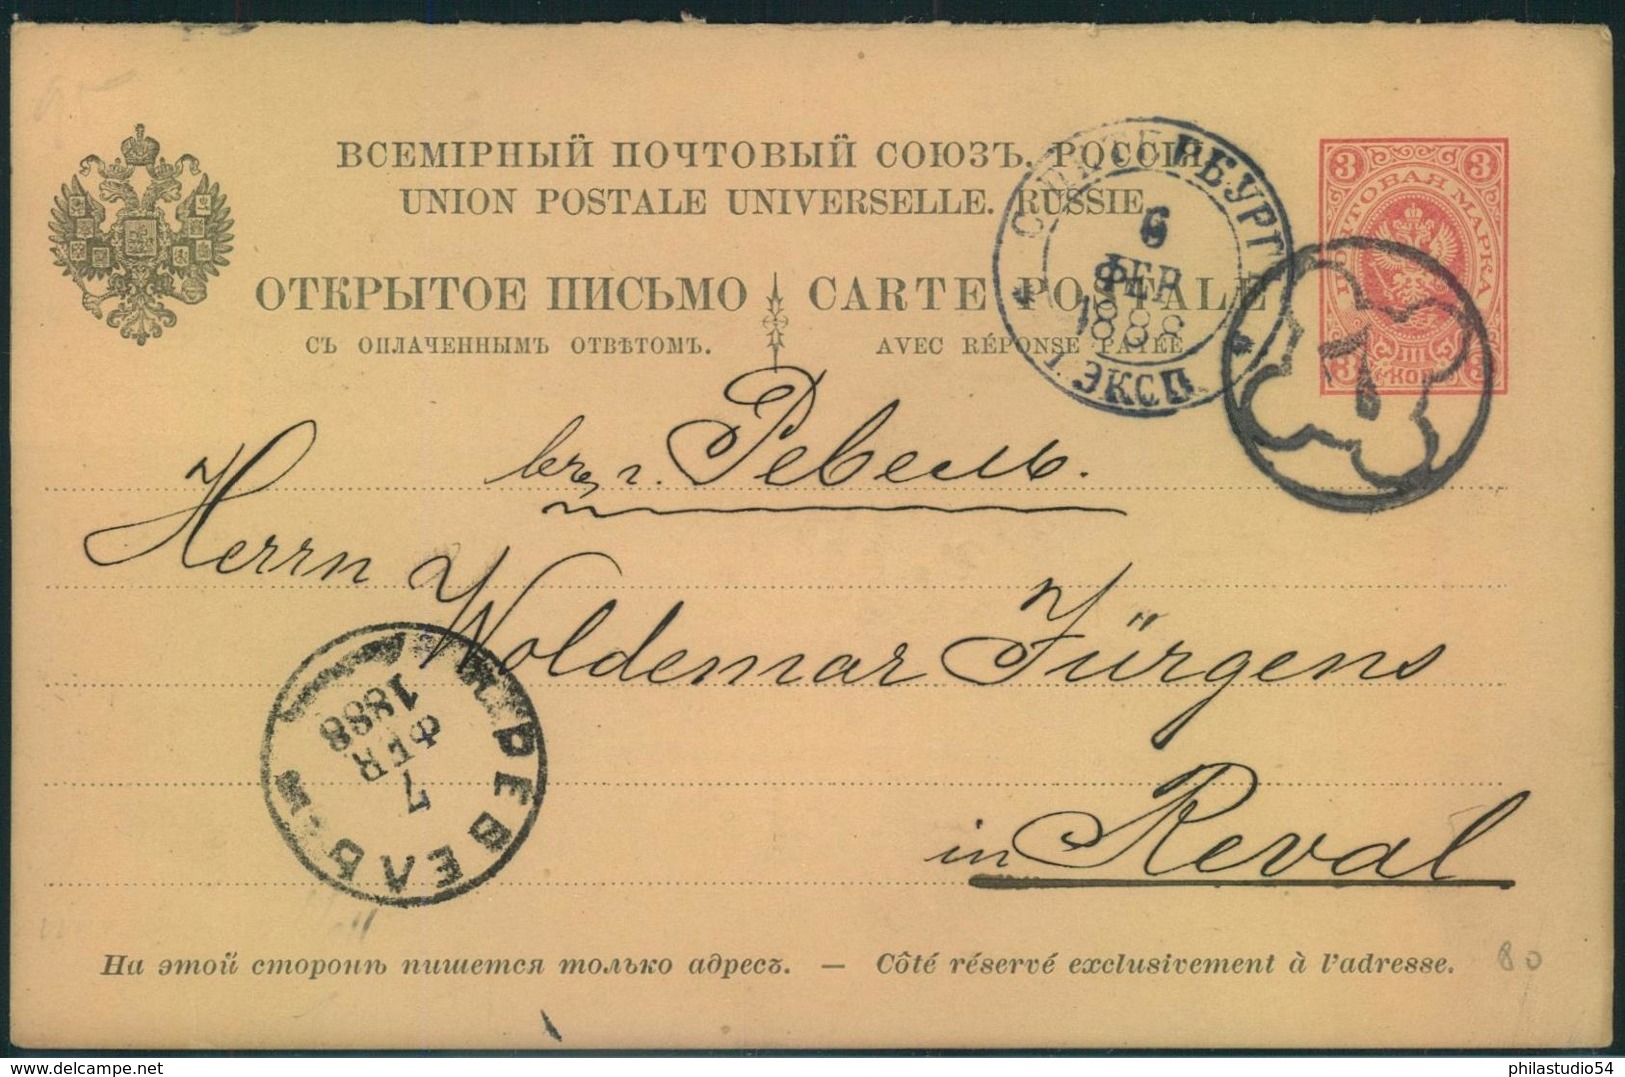 ВСЕМІРНЫЙ ПОЧТОВЫЙ СОЮЗЪ. РОССІЯ.
UNION POSTALE UNIVERSELLE. RUSSIE.
ОТКРЫТОЕ ПИСЬМО
CARTE POSTALE
СЪ ОПЛАЧЕННЫМЪ ОТВѢТОМЪ.
AVEC RÉPONSE PAYÉE
С.ПЕТЕРБУРГЪ
6
ФЕВ
1888
1 ЭКСП.
3 3
ПОЧТОВАЯ МАРКА
III
3 КОП. 3
7
въ г. Ревель.
Herrn Woldemar Jürgens
in Reval
РЕВЕЛЬ
7
ФЕВ
1888
На этой сторонѣ пишется только адресъ. — Côté réservé exclusivement à l'adresse.
80
www.delcampe.net
philastudio54